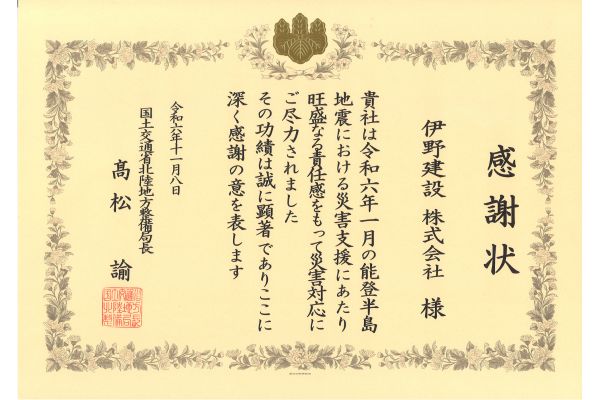 感謝状
伊野建設 株式会社 様
貴社は令和六年一月の能登半島
地震における災害支援にあたり
旺盛なる責任感をもって災害対応に
ご尽力されました
その功績は誠に顕著でありここに
深く感謝の意を表します
令和六年十一月八日
国土交通省北陸地方整備局長
髙松 諭